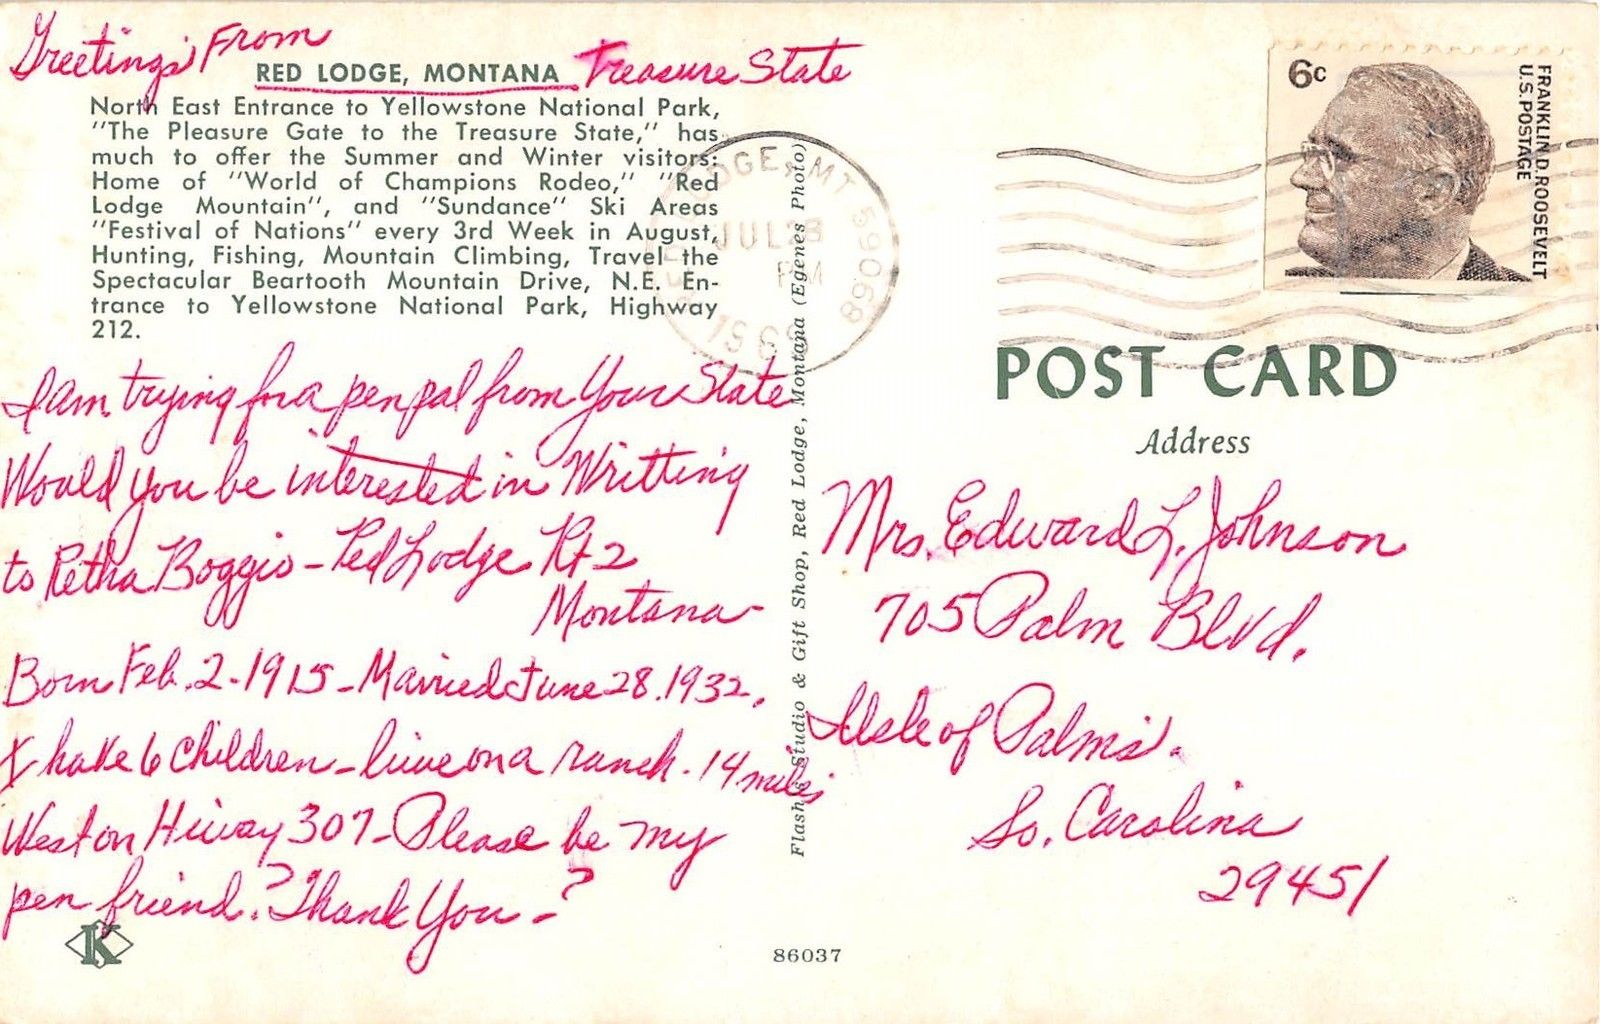 Greetings From
RED LODGE, MONTANA Treasure State
North East Entrance to Yellowstone National Park,
"The Pleasure Gate to the Treasure State," has
much to offer the Summer and Winter visitors:
Home of "World of Champions Rodeo," "Red
Lodge Mountain", and "Sundance" Ski Areas
"Festival of Nations" every 3rd Week in August,
Hunting, Fishing, Mountain Climbing, Travel the
Spectacular Beartooth Mountain Drive, N.E. En-
trance to Yellowstone National Park, Highway
212.
I am trying for a pen pal from Your State
Would you be interested in Writting
to Retha Boggio - Red Lodge Rt 2
Montana -
Born Feb. 2 - 1915 - Married June 28. 1932.
I have 6 children - live on a ranch. 14 miles
West on Hiway 307 - Please be my
pen friend? Thank You - ?
K
86037
Flash's Studio & Gift Shop, Red Lodge, Montana (Egenes Photo)
LODGE MT 59068
JUL 28
PM
196
6c
FRANKLIN D. ROOSEVELT
U.S. POSTAGE
POST CARD
Address
Mrs. Edward L. Johnson
705 Palm Blvd.
Isle of Palms.
So. Carolina
29451